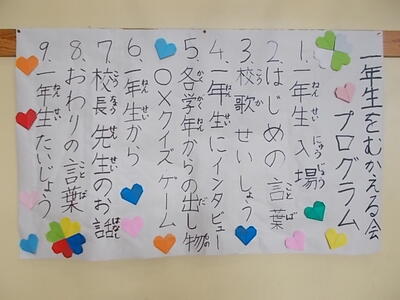 一年生をむかえる会
プログラム
1.一年生入場
2.はじめの言葉
3.校歌せいしょう
4.一年生にインタビュー
5.各学年からの出し物
〇×クイズゲーム
6.一年生から
7.校長先生のお話
8.おわりの言葉
9.一年生たいじょう